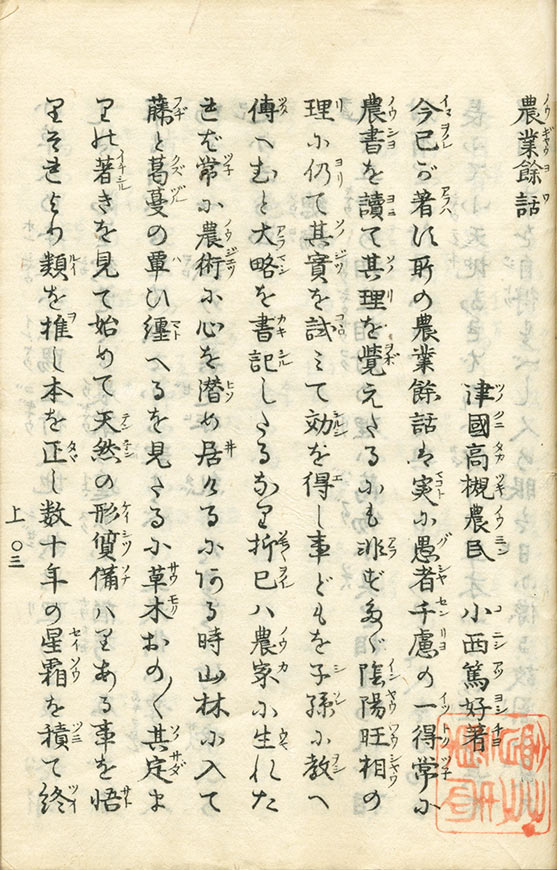 農業餘話
津國高槻農民 小西篤好著
今已が著はす所の農業餘話は実に愚者千慮の一得常に
農書を讀て其理を覚えたるにも非ずたゞ陰陽旺相の
理に仍て其實を試ミて効を得し事どもを子孫に教へ
傳へむと大略を書記したるなり抑已ハ農家に生れた
れば常に農術に心を潜め居けるにある時山林に入て
藤と葛蔓の覃ひ纏へるを見たるに草木おの〱其定ま
りの著きを見て始めて天然の形質備ハりある事を悟
りそれより類を推し本を正し数十年の星霜を積て終
上 〇三